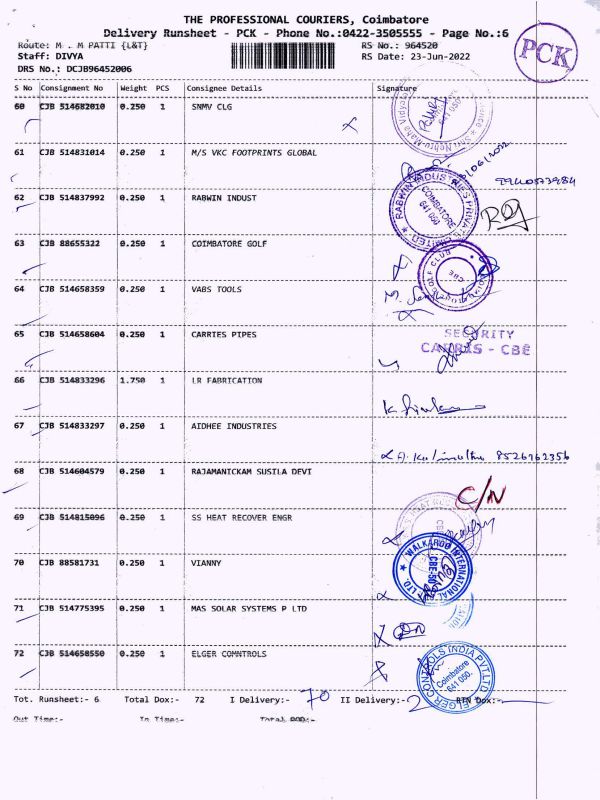 THE PROFESSIONAL COURIERS, Coimbatore
Delivery Runsheet - PCK - Phone No.:0422-3505555 - Page No.:6
Route: M . M PATTI {L&T} RS No.: 964520
Staff: DIVYA RS Date: 23-Jun-2022
DRS No.: DCJB96452006
PCK
S No Consignment No Weight PCS Consignee Details Signature
60 CJB 514682010 0.250 1 SNMV CLG
61 CJB 514831014 0.250 1 M/S VKC FOOTPRINTS GLOBAL
62 CJB 514837992 0.250 1 RABWIN INDUST
RABWIN INDUSTRIES PRIVATE LIMITED COIMBATORE 641 050
63 CJB 88655322 0.250 1 COIMBATORE GOLF
GOLF CLUB CBE
64 CJB 514658359 0.250 1 VABS TOOLS
65 CJB 514658604 0.250 1 CARRIES PIPES
SECURITY
CBE
66 CJB 514833296 1.750 1 LR FABRICATION
67 CJB 514833297 0.250 1 AIDHEE INDUSTRIES
8526762356
68 CJB 514604579 0.250 1 RAJAMANICKAM SUSILA DEVI
C/N
69 CJB 514815096 0.250 1 SS HEAT RECOVER ENGR
70 CJB 88581731 0.250 1 VIANNY
WALKAROO INTERNATIONAL LTD. CBE-50
71 CJB 514775395 0.250 1 MAS SOLAR SYSTEMS P LTD
72 CJB 514658550 0.250 1 ELGER COMNTROLS
ELGER CONTROLS INDIA PVT.LTD Coimbatore 641 050.
Tot. Runsheet:- 6 Total Dox:- 72 I Delivery:- 70 II Delivery:- 2 RTN Dox:-
Out Time:- In Time:- Total